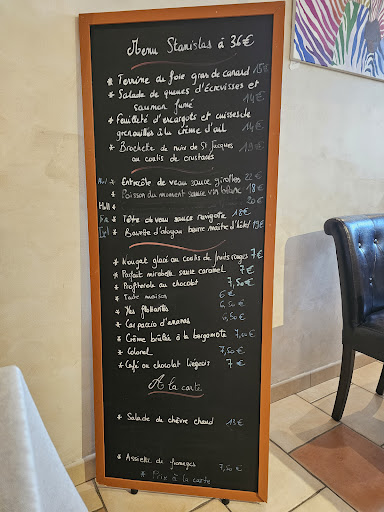 Menu Stanislas à 36€
* Terrine de foie gras de canard 15€
* Salade de queues d'écrevisses et
saumon fumé 14€
* Feuilleté d'escargots et cuisses de
grenouilles à la crème d'ail 14€
* Brochette de noix de St Jacques
au coulis de crustacés 19€
* Entrecôte de veau sauce girolles 22€
* Poisson du moment sauce vin blanc 18€
* 20€
* Tête de veau sauce ravigote 18€
* Bavette d'aloyau beurre maître d'hôtel 19€
* Nougat glacé au coulis de fruits rouges 7€
* Parfait mirabelle sauce caramel 7€
* Profiterole au chocolat 7,50€
* Tarte maison 6€
* Iles flottantes 6,50€
* Carpaccio d'ananas 6,50€
* Crème brûlée à la bergamote 7,00€
* Colonel 7,50€
* Café ou chocolat liégeois 7€
A la carte
* Salade de chèvre chaud 13€
* Assiette de fromages 7,50€
* Prix à la carte